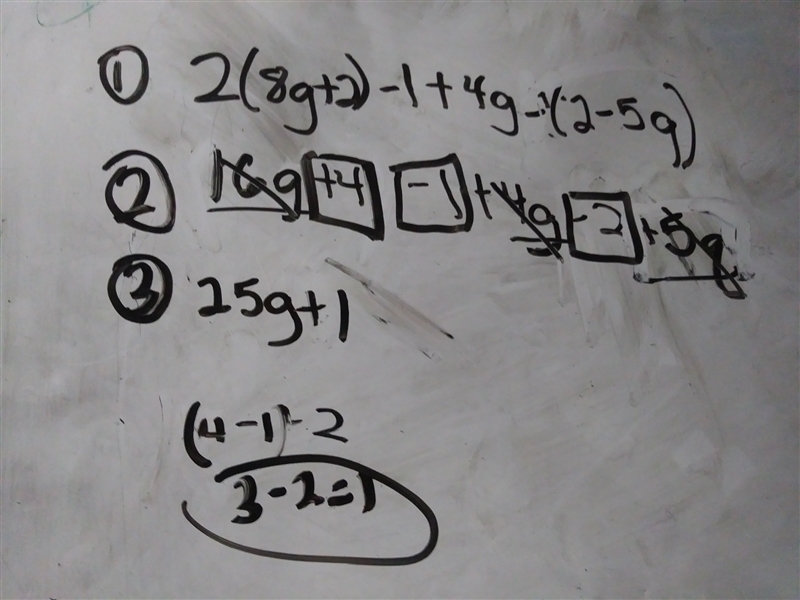 ① 2(8g+2)-1+4g-1(2-5g)
② 16g+4-1+4g-2+5g
③ 25g+1
(4-1)-2
3-2=1